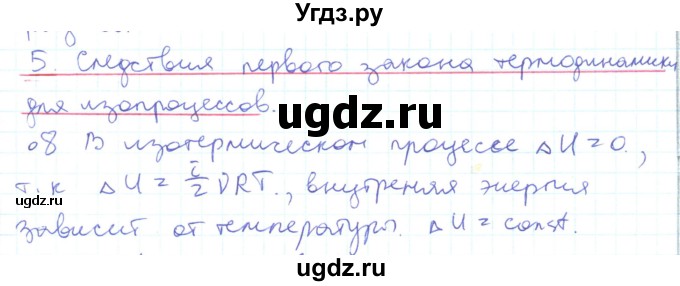 Угдз.ру
5. Следствия первого закона термодинамики
для изопроцессов.
08 В изотермическом процессе ΔU = 0.,
т.к ΔU = i/2 νRT., внутреняя энергия
зависит от температуры. ΔU = const.
ugdz.ru
ugdz.ru
ugdz.ru
ugdz.ru
ugdz.ru
ugdz.ru